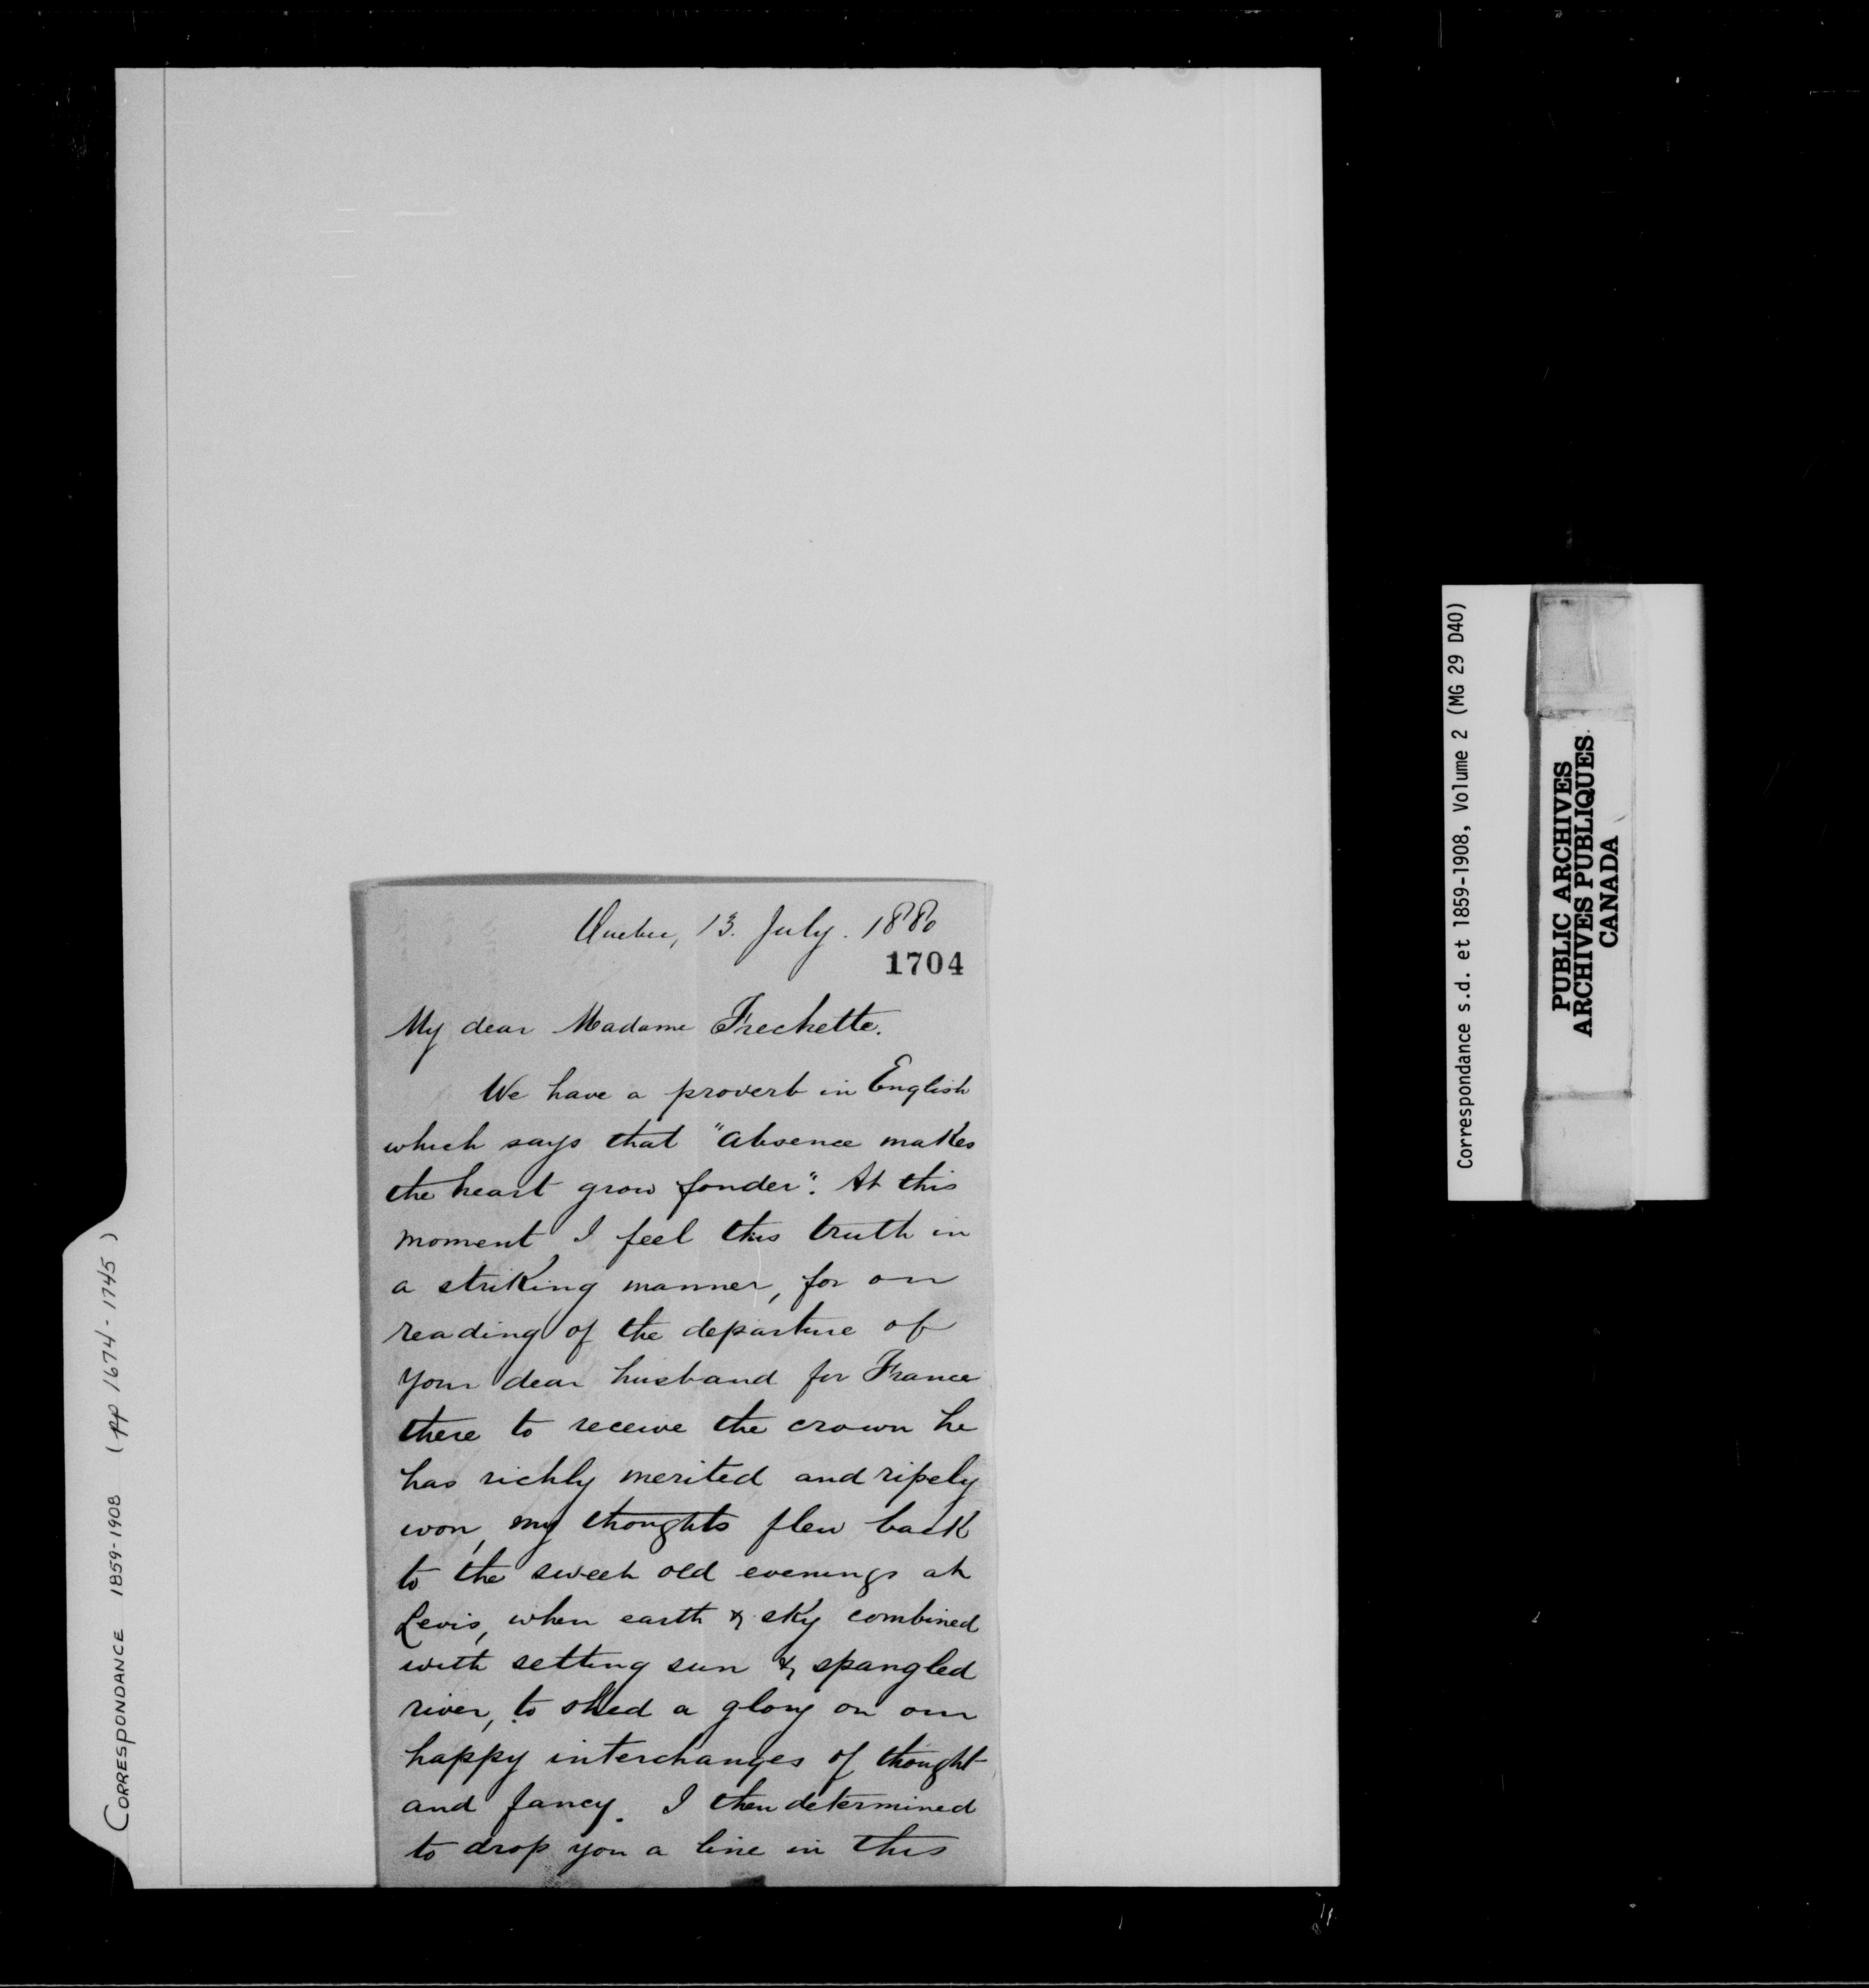 Quebec, 13. July. 1880
1704
My dear Madame Frechette.
We have a proverb in English
which says that "absence makes
the heart grow fonder". At this
moment I feel this truth in
a striking manner, for on
reading of the departure of
your dear husband for France
there to receive the crown he
has richly merited and ripely
won, my thoughts flew back
to the sweet old evenings at
Levis, when earth & sky combined
with setting sun & spangled
river, to shed a glory on our
happy interchanges of thought
and fancy. I then determined
to drop you a line in this
CORRESPONDANCE 1859-1908 (pp 1674-1745)
Correspondance s.d. et 1859-1908, Volume 2 (MG 29 D40)
PUBLIC ARCHIVES
ARCHIVES PUBLIQUES
CANADA